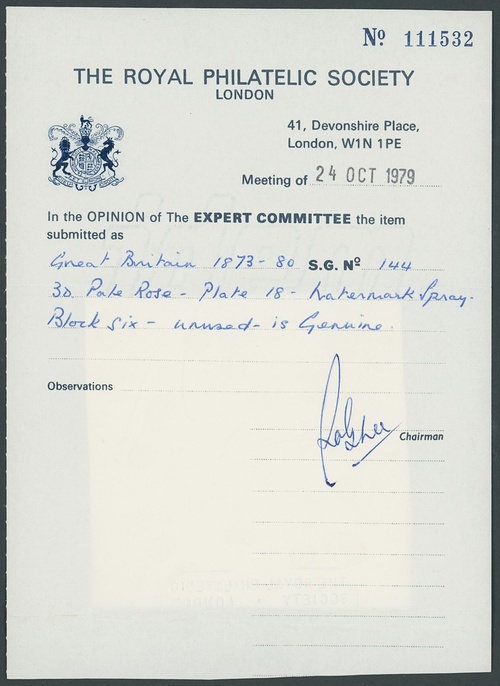 Nº 111532
THE ROYAL PHILATELIC SOCIETY
LONDON
41, Devonshire Place,
London, W1N 1PE
Meeting of 24 OCT 1979
In the OPINION of The EXPERT COMMITTEE the item
submitted as
Great Britain 1873-80 S.G. Nº 144
3D. Pale Rose - Plate 18 - Watermark Spray.
Block six - unused - is Genuine.
Observations
Chairman